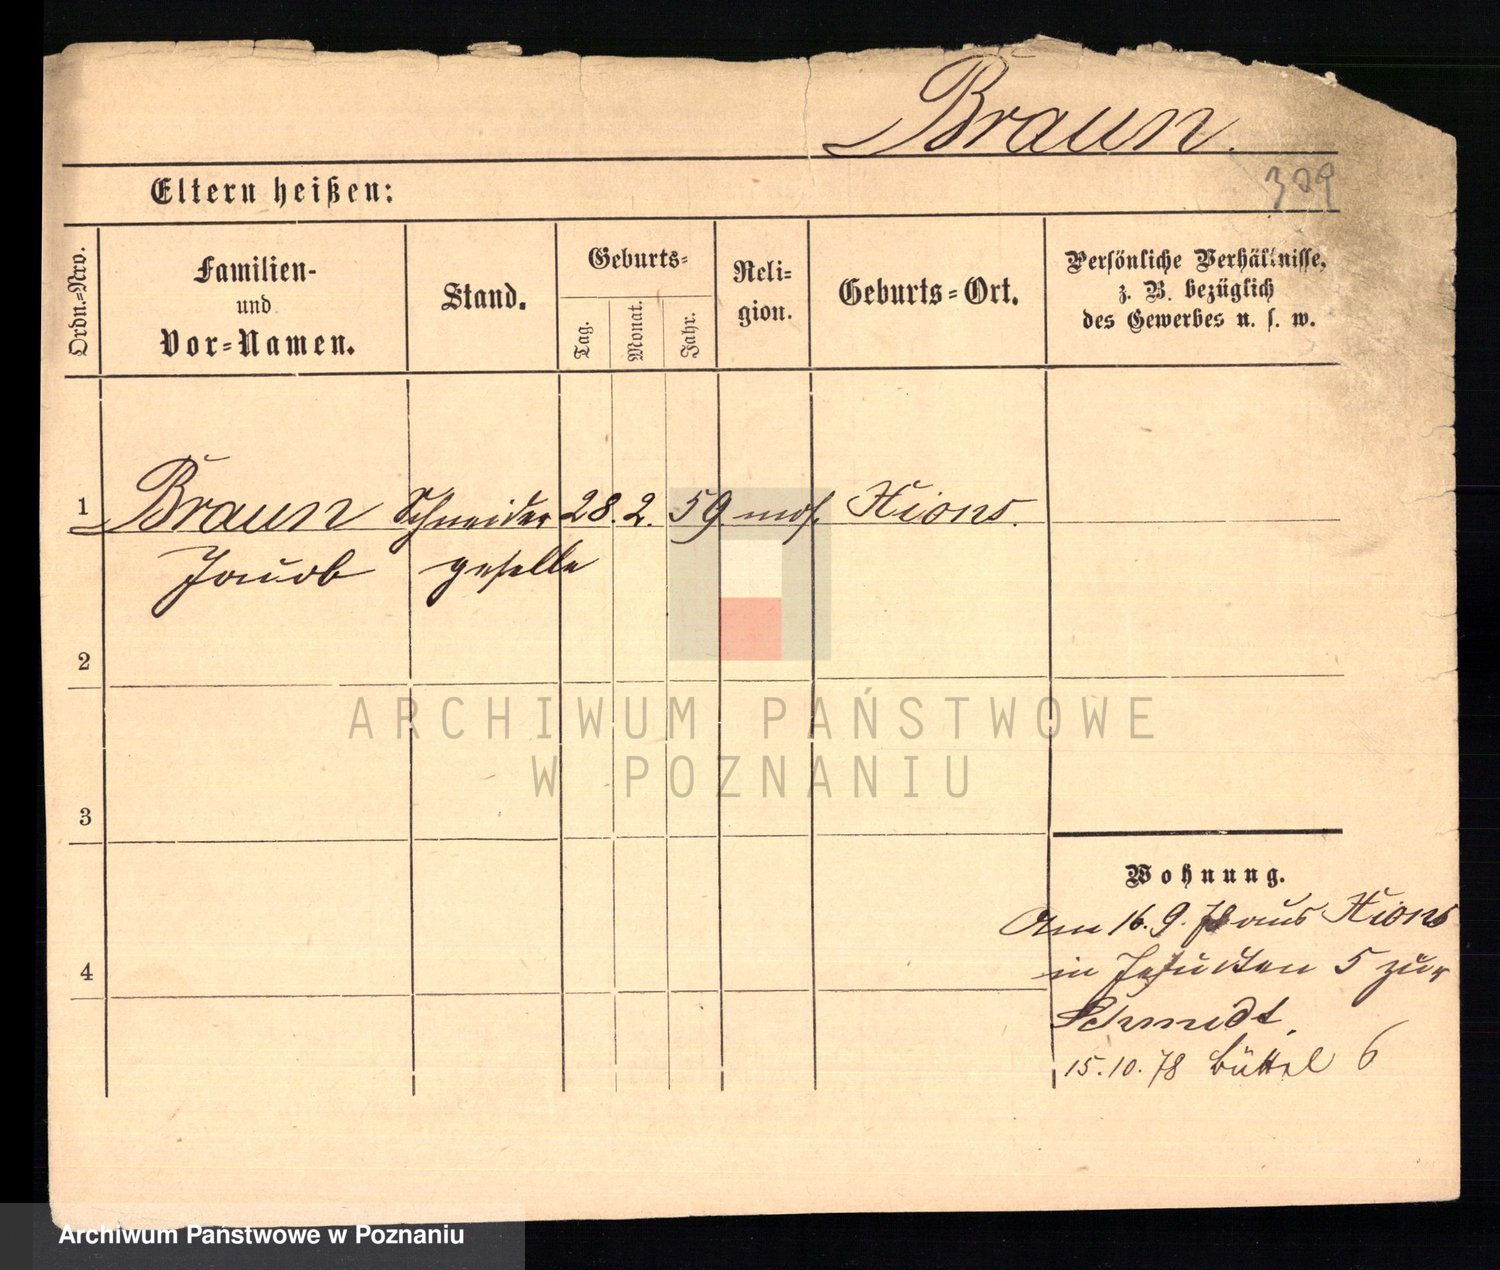 Braun.
309
Eltern heißen:
Ordn.=Nro.
Familien-
und
Vor=Namen.
Stand.
Geburts=
Tag.
Monat.
Jahr.
Reli=
gion.
Geburts=Ort.
Persönliche Verhältnisse,
z. B. bezüglich
des Gewerbes u. s. w.
1 Braun Schneider 28. 2. 59 mos. Xions.
Jacob geselle
2
3
4
Wohnung.
Am 16. 9. 78 aus Xions
in Jesuiten 5 zur
Schmidt.
15. 10. 78 Büttel 6
ARCHIWUM PAŃSTWOWE
W POZNANIU
Archiwum Państwowe w Poznaniu